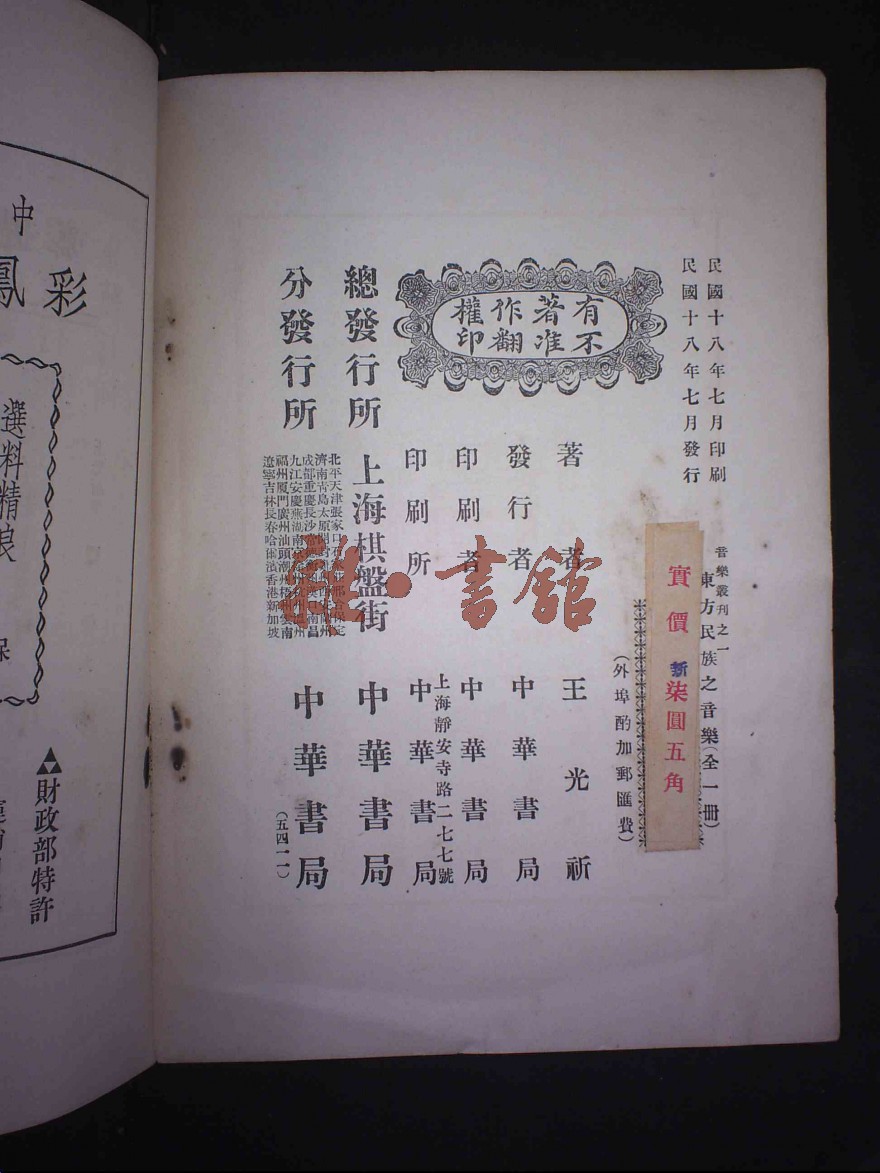 民國十八年七月印刷
民國十八年七月發行
音樂叢刊之一
東方民族之音樂(全一冊)
實價新柒圓五角
(外埠酌加郵匯費)
有著作權
不准翻印
著者 王光祈
發行者 中華書局
印刷者 中華書局
上海靜安寺路二七七號
印刷所 中華書局
總發行所 上海棋盤街 中華書局
分發行所 中華書局
北平天津張家口 保定
濟南青島太原開封 蘭州
成都重慶長沙 南昌
九江安慶蕪湖南京 溫州
福州厦門廣州汕頭潮州梧州雲南
遼寧吉林長春哈爾濱香港新加坡
(五四一一)
雅·書館
中
彩鳳
選料精良
保
財政部特許